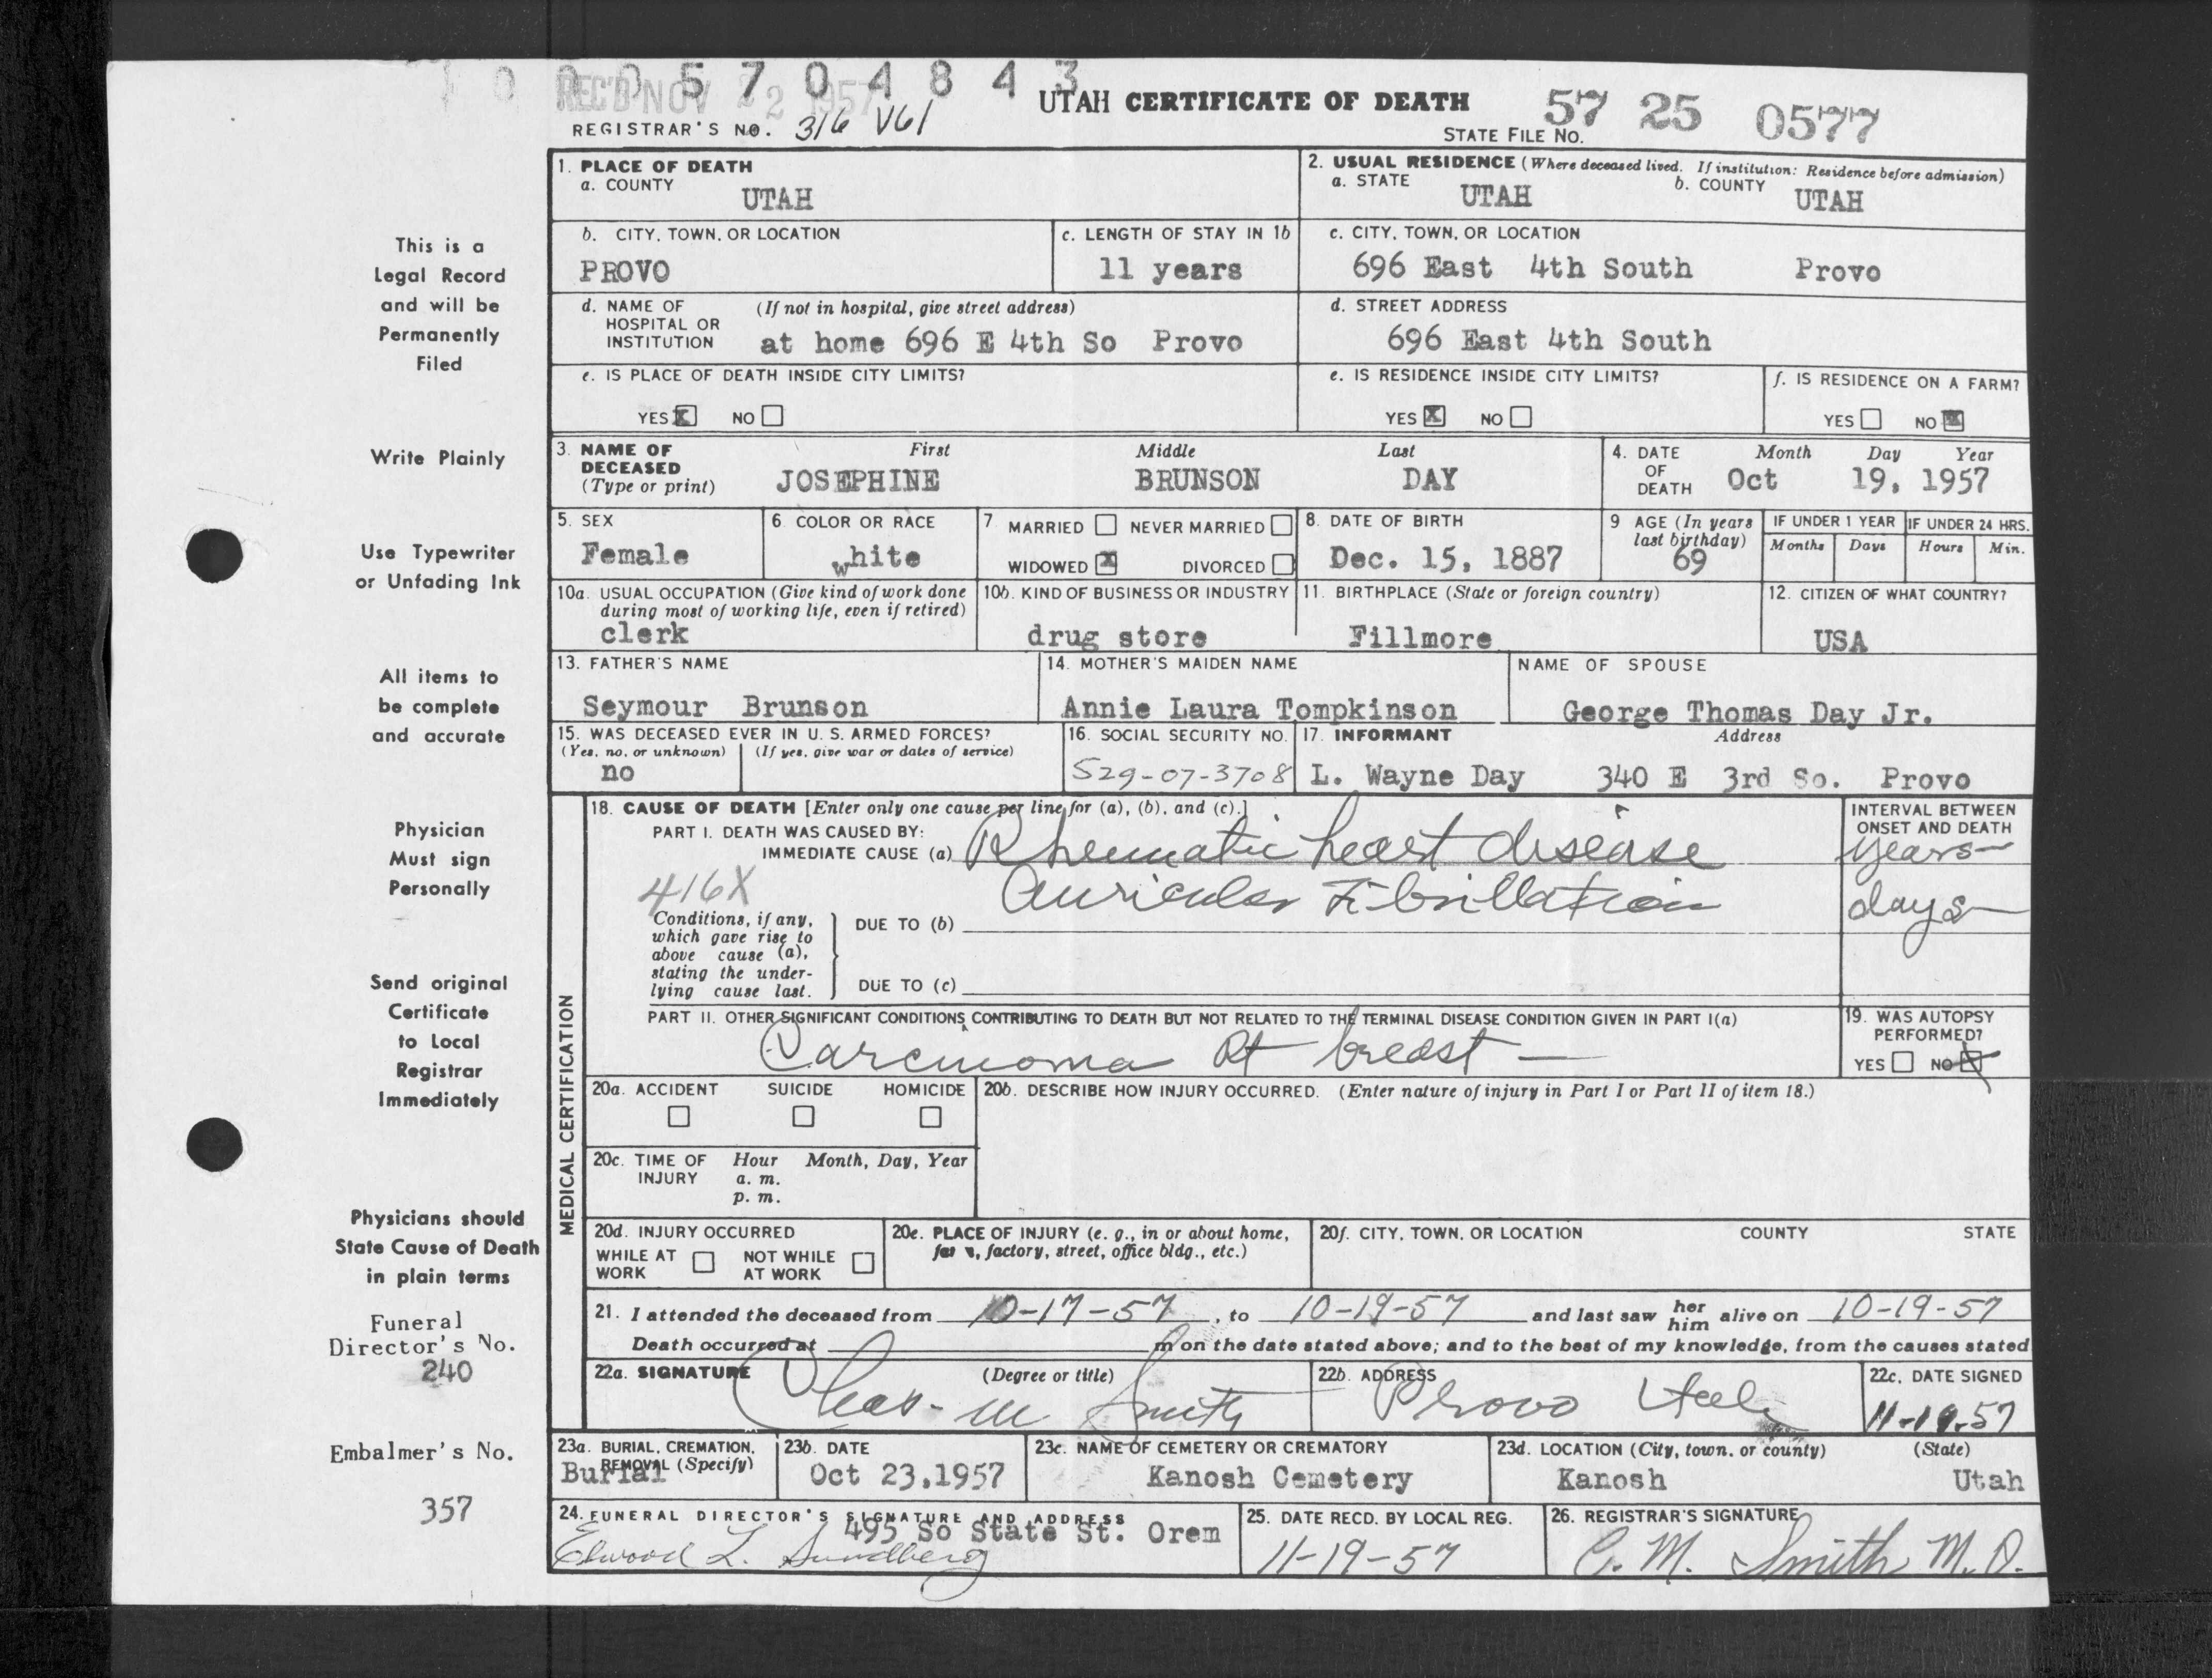 1 0 0 0 5 7 0 4 8 4 3
REC'D NOV 22 1957
REGISTRAR'S NO. 316 V61
UTAH CERTIFICATE OF DEATH
STATE FILE NO. 57 25 0577
This is a
Legal Record
and will be
Permanently
Filed
Write Plainly
Use Typewriter
or Unfading Ink
All items to
be complete
and accurate
Physician
Must sign
Personally
Send original
Certificate
to Local
Registrar
Immediately
Physicians should
State Cause of Death
in plain terms
Funeral
Director's No.
240
Embalmer's No.
357
1. PLACE OF DEATH
a. COUNTY
UTAH
2. USUAL RESIDENCE (Where deceased lived. If institution: Residence before admission)
a. STATE UTAH b. COUNTY UTAH
b. CITY, TOWN, OR LOCATION
PROVO
c. LENGTH OF STAY IN 1b
11 years
c. CITY, TOWN, OR LOCATION
696 East 4th South Provo
d. NAME OF (If not in hospital, give street address)
HOSPITAL OR
INSTITUTION at home 696 E 4th So Provo
d. STREET ADDRESS
696 East 4th South
e. IS PLACE OF DEATH INSIDE CITY LIMITS?
YES X NO
e. IS RESIDENCE INSIDE CITY LIMITS?
YES X NO
f. IS RESIDENCE ON A FARM?
YES NO X
3. NAME OF First Middle Last
DECEASED
(Type or print) JOSEPHINE BRUNSON DAY
4. DATE Month Day Year
OF
DEATH Oct 19, 1957
5. SEX
Female
6. COLOR OR RACE
white
7 MARRIED NEVER MARRIED
WIDOWED X DIVORCED
8. DATE OF BIRTH
Dec. 15, 1887
9 AGE (In years
last birthday)
69
IF UNDER 1 YEAR
Months Days
IF UNDER 24 HRS.
Hours Min.
10a. USUAL OCCUPATION (Give kind of work done
during most of working life, even if retired)
clerk
10b. KIND OF BUSINESS OR INDUSTRY
drug store
11. BIRTHPLACE (State or foreign country)
Fillmore
12. CITIZEN OF WHAT COUNTRY?
USA
13. FATHER'S NAME
Seymour Brunson
14. MOTHER'S MAIDEN NAME
Annie Laura Tompkinson
NAME OF SPOUSE
George Thomas Day Jr.
15. WAS DECEASED EVER IN U. S. ARMED FORCES?
(Yes, no, or unknown) (If yes, give war or dates of service)
no
16. SOCIAL SECURITY NO.
529-07-3708
17. INFORMANT Address
L. Wayne Day 340 E 3rd So. Provo
MEDICAL CERTIFICATION
18. CAUSE OF DEATH [Enter only one cause per line for (a), (b), and (c).]
PART I. DEATH WAS CAUSED BY:
IMMEDIATE CAUSE (a) Rheumatic heart disease
INTERVAL BETWEEN
ONSET AND DEATH
years
416X
Auricular Fibrillation
days
Conditions, if any,
which gave rise to
above cause (a),
stating the under-
lying cause last.
DUE TO (b)
DUE TO (c)
PART II. OTHER SIGNIFICANT CONDITIONS CONTRIBUTING TO DEATH BUT NOT RELATED TO THE TERMINAL DISEASE CONDITION GIVEN IN PART I(a)
Carcinoma Rt breast —
19. WAS AUTOPSY
PERFORMED?
YES NO X
20a. ACCIDENT SUICIDE HOMICIDE
20b. DESCRIBE HOW INJURY OCCURRED. (Enter nature of injury in Part I or Part II of item 18.)
20c. TIME OF Hour Month, Day, Year
INJURY a. m.
p. m.
20d. INJURY OCCURRED
WHILE AT WORK NOT WHILE AT WORK
20e. PLACE OF INJURY (e. g., in or about home,
farm, factory, street, office bldg., etc.)
20f. CITY, TOWN, OR LOCATION COUNTY STATE
21. I attended the deceased from 10-17-57, to 10-19-57 and last saw her him alive on 10-19-57
Death occurred at m on the date stated above; and to the best of my knowledge, from the causes stated
22a. SIGNATURE (Degree or title)
Chas. M Smith
22b. ADDRESS
Provo Utah
22c. DATE SIGNED
11-19-57
23a. BURIAL, CREMATION,
REMOVAL (Specify)
Burial
23b. DATE
Oct 23,1957
23c. NAME OF CEMETERY OR CREMATORY
Kanosh Cemetery
23d. LOCATION (City, town, or county) (State)
Kanosh Utah
24. FUNERAL DIRECTOR'S SIGNATURE AND ADDRESS
495 So State St. Orem
Elwood L. Sundberg
25. DATE RECD. BY LOCAL REG.
11-19-57
26. REGISTRAR'S SIGNATURE
C. M. Smith M.D.